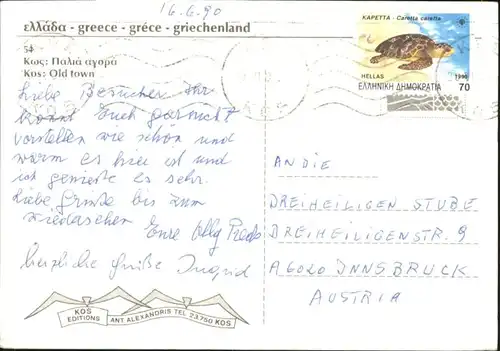 16.6.90
ελλάδα - greece - gréce - griechenland
54
Κως: Παλιά αγορά
Kos: Old town
ΚΑΡΕΤΤΑ - Caretta caretta
HELLAS 1990
ΕΛΛΗΝΙΚΗ ΔΗΜΟΚΡΑΤΙΑ 70
Liebe Besucher Ihr
könnt Euch gar nicht
vorstellen wie schön und
warm es hier ist und
ich genieße es sehr.
Liebe Grüße bis zum
wiedersehen
Eure
herzliche Grüße Ingrid
AN DIE
DREIHEILIGEN STUBE
DREIHEILIGENSTR. 9
A 6020 INNSBRUCK
AUSTRIA
KOS
EDITIONS
ANT ALEXANDRIS TEL 23.750 KOS